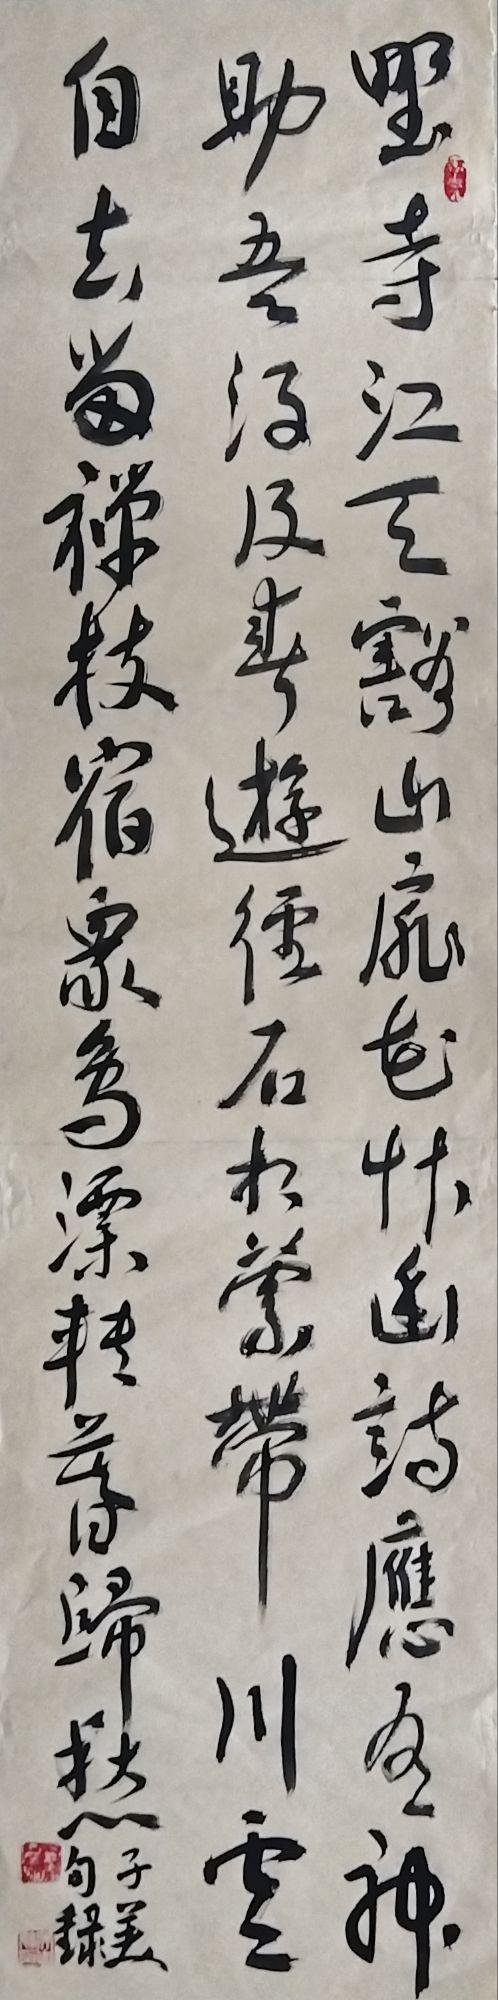 野寺江天豁山扉花竹幽詩應有神
助吾得及春遊徑石相縈帶川雲
自去留禪枝宿衆鳥漂轉暮歸愁
子美
句錄